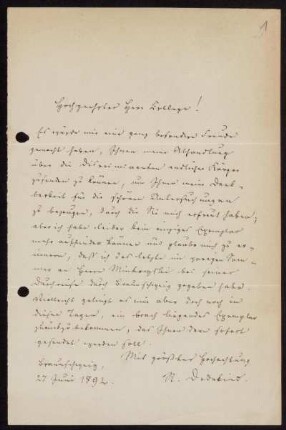 1
Hochgeehrter Herr College!
Es würde mir eine ganz besondere Freude
gemacht haben, Ihnen meine Abhandlung
über die Discriminanten endlicher Körper
zusenden zu können, um Ihnen meine Dank-
barkeit für die schönen Untersuchungen
zu bezeugen, durch die Sie mich erfreut haben;
aber ich habe leider kein einziges Exemplar
mehr auffinden können und glaube mich zu er-
innern, daß ich das letzte im vorigen Som-
mer an Herrn Minkowski bei seiner
Durchreise durch Braunschweig gegeben habe.
Vielleicht gelingt es mir aber doch noch in
diesen Tagen, ein brach liegendes Exemplar
zu bekommen, das Ihnen dann sofort
gesendet werden soll.
Mit größter Hochachtung
Braunschweig,
27 Juni 1892.
R. Dedekind.